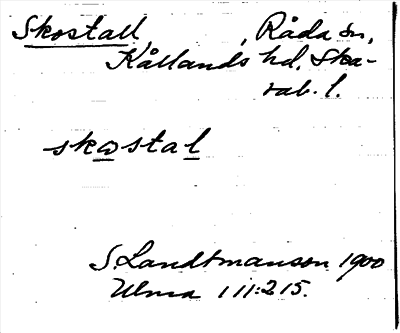 Skostall, Råda sn,
Kållands hd, Ska-
rab. l.
skωstal
S. Landtmanson 1900
Ulma 111:215.